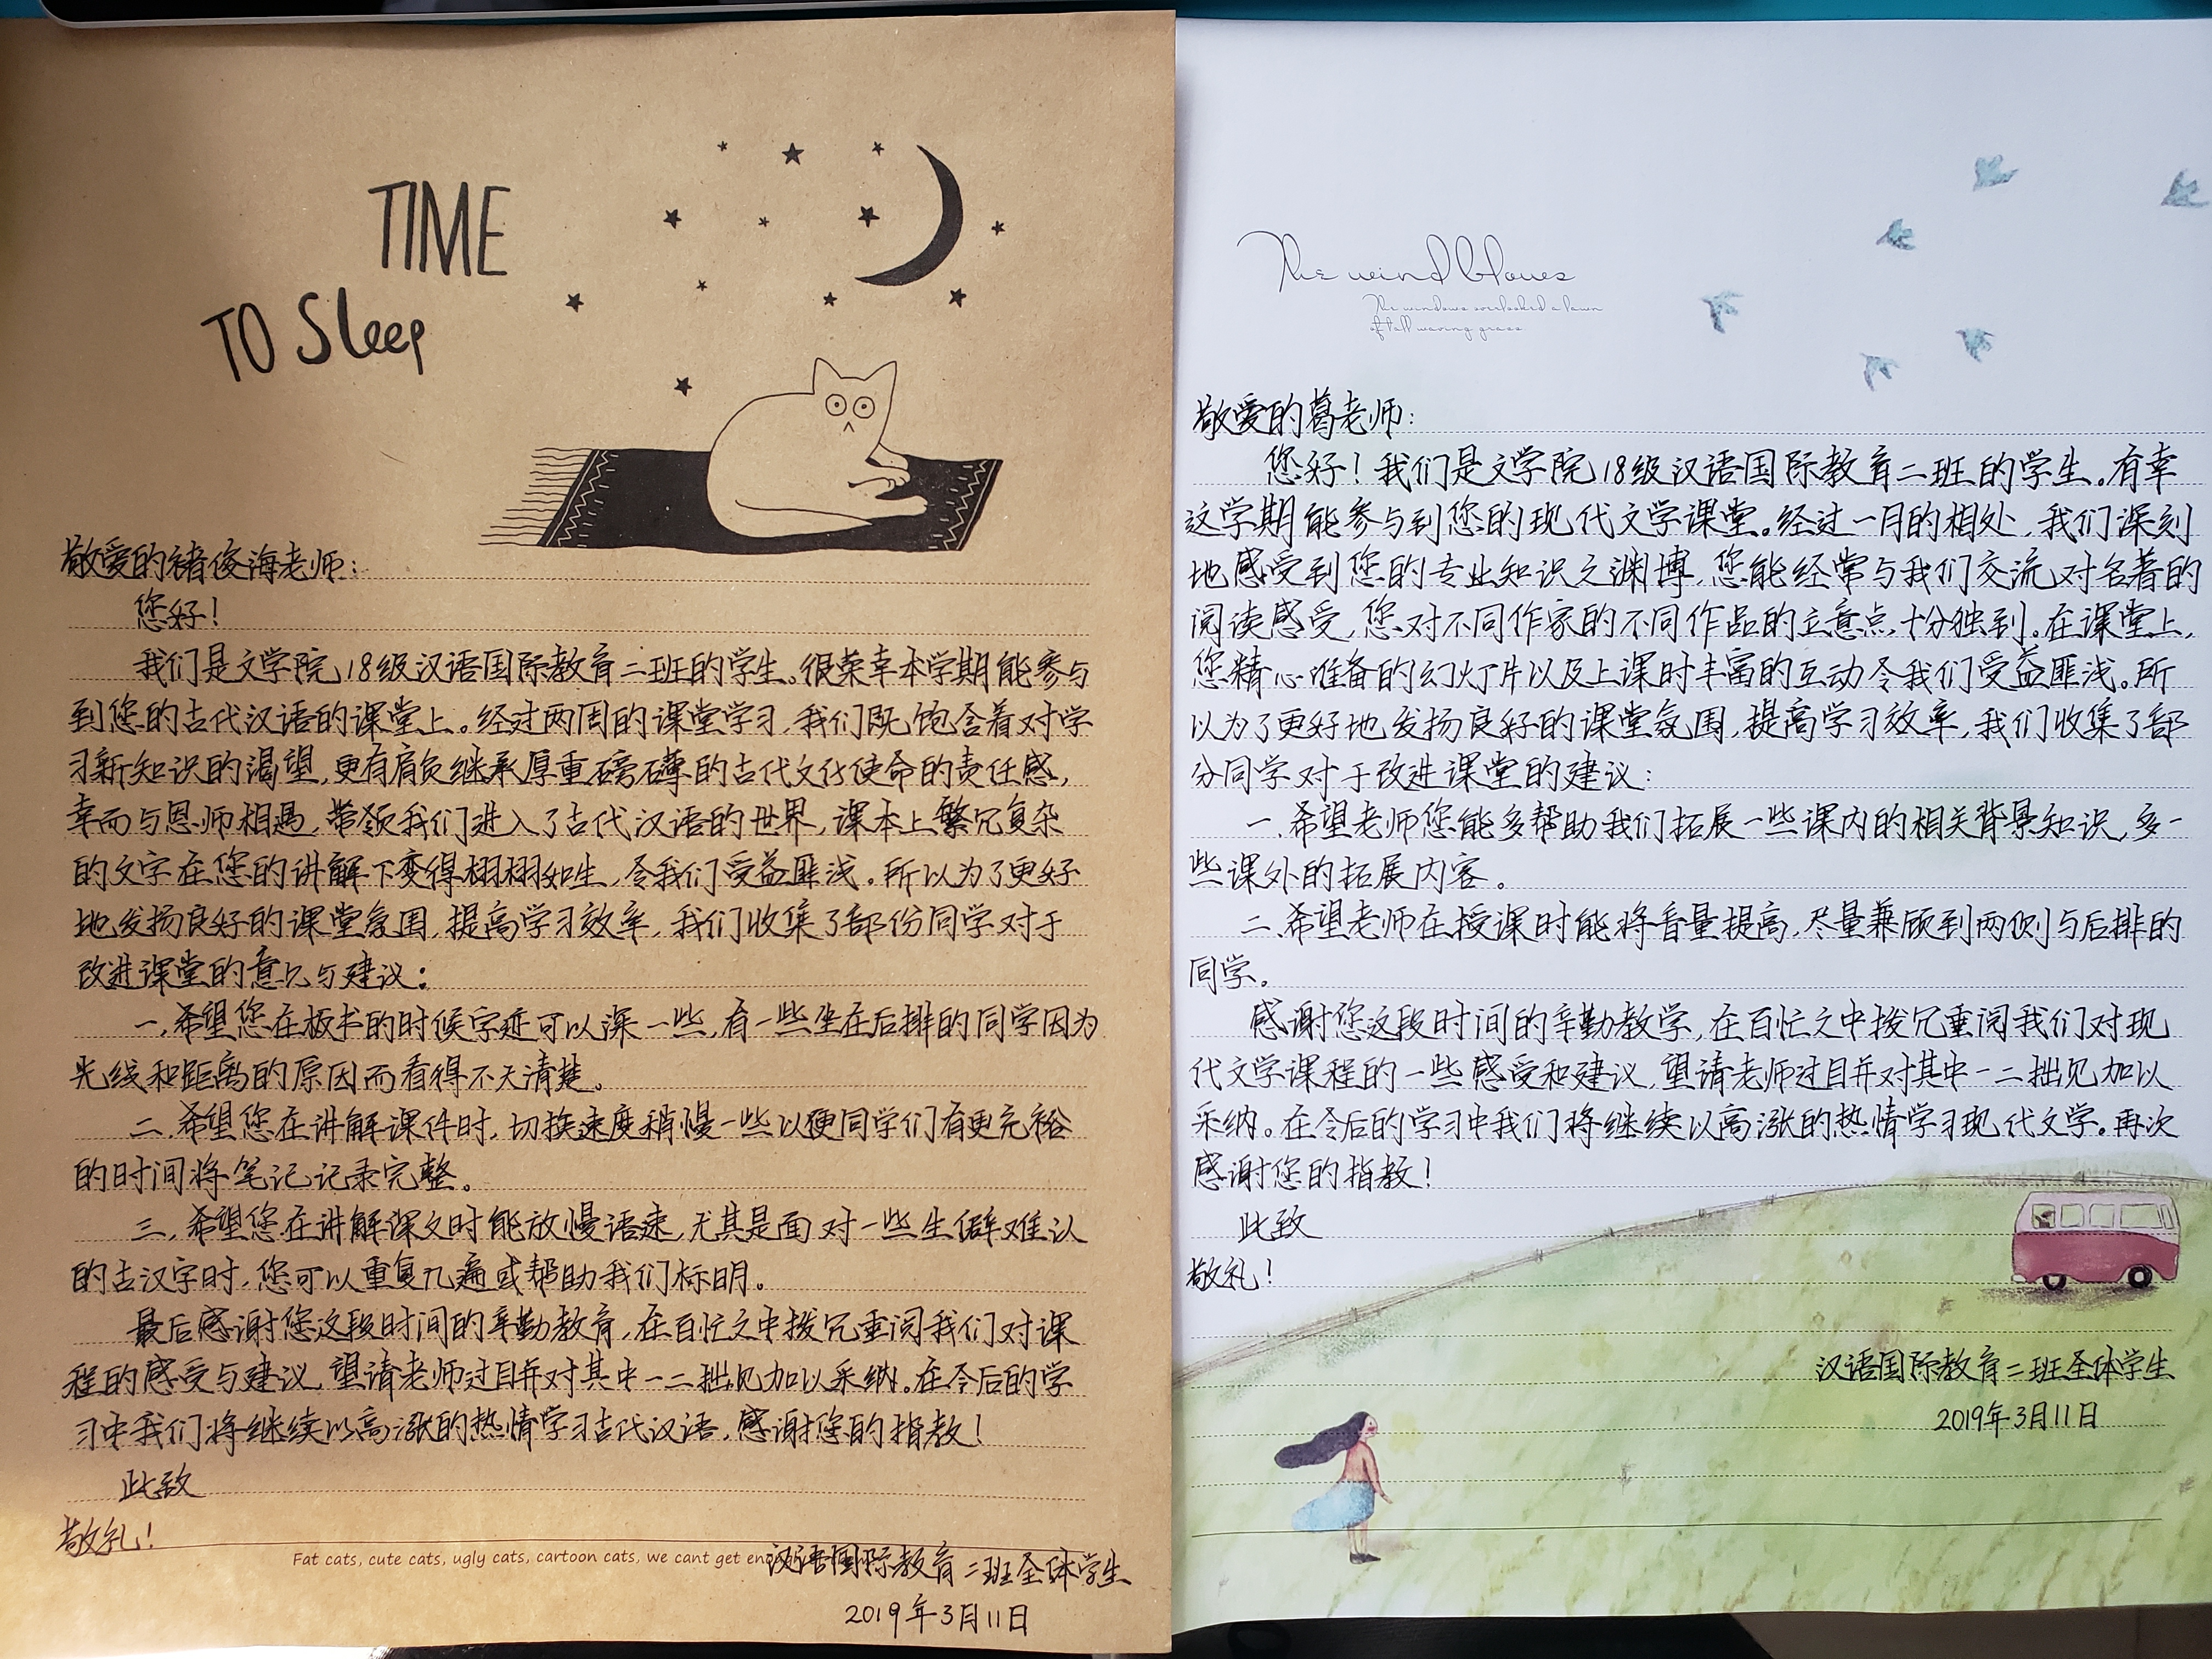 TIME
TO Sleep
敬爱的褚俊海老师：
您好！
我们是文学院18级汉语国际教育二班的学生。很荣幸本学期能参与
到您的古代汉语的课堂上。经过两周的课堂学习，我们既饱含着对学
习新知识的渴望，更有肩负继承厚重磅礴的古代文化使命的责任感，
幸而与恩师相遇，带领我们进入了古代汉语的世界，课本上繁冗复杂
的文字在您的讲解下变得栩栩如生，令我们受益匪浅。所以为了更好
地发扬良好的课堂氛围，提高学习效率，我们收集了部份同学对于
改进课堂的意见与建议：
一，希望您在板书的时候字迹可以深一些，有一些坐在后排的同学因为
光线和距离的原因而看得不大清楚。
二，希望您在讲解课件时，切换速度稍慢一些以便同学们有更充裕
的时间将笔记记录完整。
三，希望您在讲解课文时能放慢语速，尤其是面对一些生僻难认
的古汉字时，您可以重复几遍或帮助我们标明。
最后感谢您这段时间的辛勤教育，在百忙之中拨冗垂阅我们对课
程的感受与建议，望请老师过目并对其中一二拙见加以采纳。在今后的学
习中我们将继续以高涨的热情学习古代汉语，感谢您的指教！
此致
敬礼！
Fat cats, cute cats, ugly cats, cartoon cats, we cant get
汉语国际教育二班全体学生
2019年3月11日
The wind blows
The windows overlooked a lawn
of tall waving grass
敬爱的葛老师：
您好！我们是文学院18级汉语国际教育二班的学生。有幸
这学期能参与到您的现代文学课堂。经过一月的相处，我们深刻
地感受到您的专业知识之渊博，您能经常与我们交流对名著的
阅读感受，您对不同作家的不同作品的立意点十分独到。在课堂上，
您精心准备的幻灯片以及上课时丰富的互动令我们受益匪浅。所
以为了更好地发扬良好的课堂氛围，提高学习效率，我们收集了部
分同学对于改进课堂的建议：
一、希望老师您能多帮助我们拓展一些课内的相关背景知识，多一
些课外的拓展内容。
二、希望老师在授课时能将音量提高，尽量兼顾到两侧与后排的
同学。
感谢您这段时间的辛勤教学，在百忙之中拨冗垂阅我们对现
代文学课程的一些感受和建议，望请老师过目并对其中一二拙见加以
采纳。在今后的学习中我们将继续以高涨的热情学习现代文学。再次
感谢您的指教！
此致
敬礼！
汉语国际教育二班全体学生
2019年3月11日